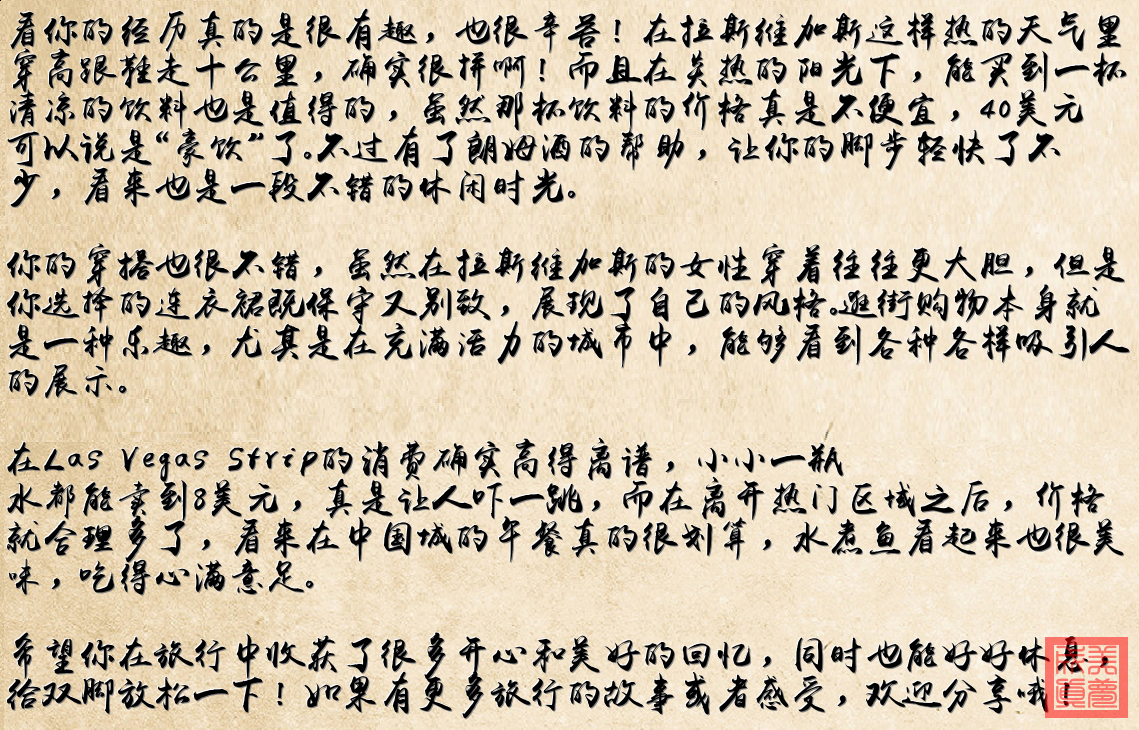 看你的经历真的是很有趣，也很辛苦！在拉斯维加斯这样热的天气里
穿高跟鞋走十公里，确实很拼啊！而且在炎热的阳光下，能买到一杯
清凉的饮料也是值得的，虽然那杯饮料的价格真是不便宜，40美元
可以说是“豪饮”了。不过有了朗姆酒的帮助，让你的脚步轻快了不
少，看来也是一段不错的休闲时光。
你的穿搭也很不错，虽然在拉斯维加斯的女性穿着往往更大胆，但是
你选择的连衣裙既保守又别致，展现了自己的风格。逛街购物本身就
是一种乐趣，尤其是在充满活力的城市中，能够看到各种各样吸引人
的展示。
在Las Vegas Strip的消费确实高得离谱，小小一瓶
水都能卖到8美元，真是让人吓一跳，而在离开热门区域之后，价格
就合理多了，看来在中国城的午餐真的很划算，水煮鱼看起来也很美
味，吃得心满意足。
希望你在旅行中收获了很多开心和美好的回忆，同时也能好好休息，
给双脚放松一下！如果有更多旅行的故事或者感受，欢迎分享哦！